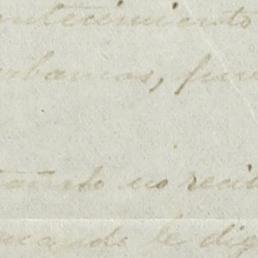 ntecimiento
rbamos, fue
tanto no reci
mande le dig